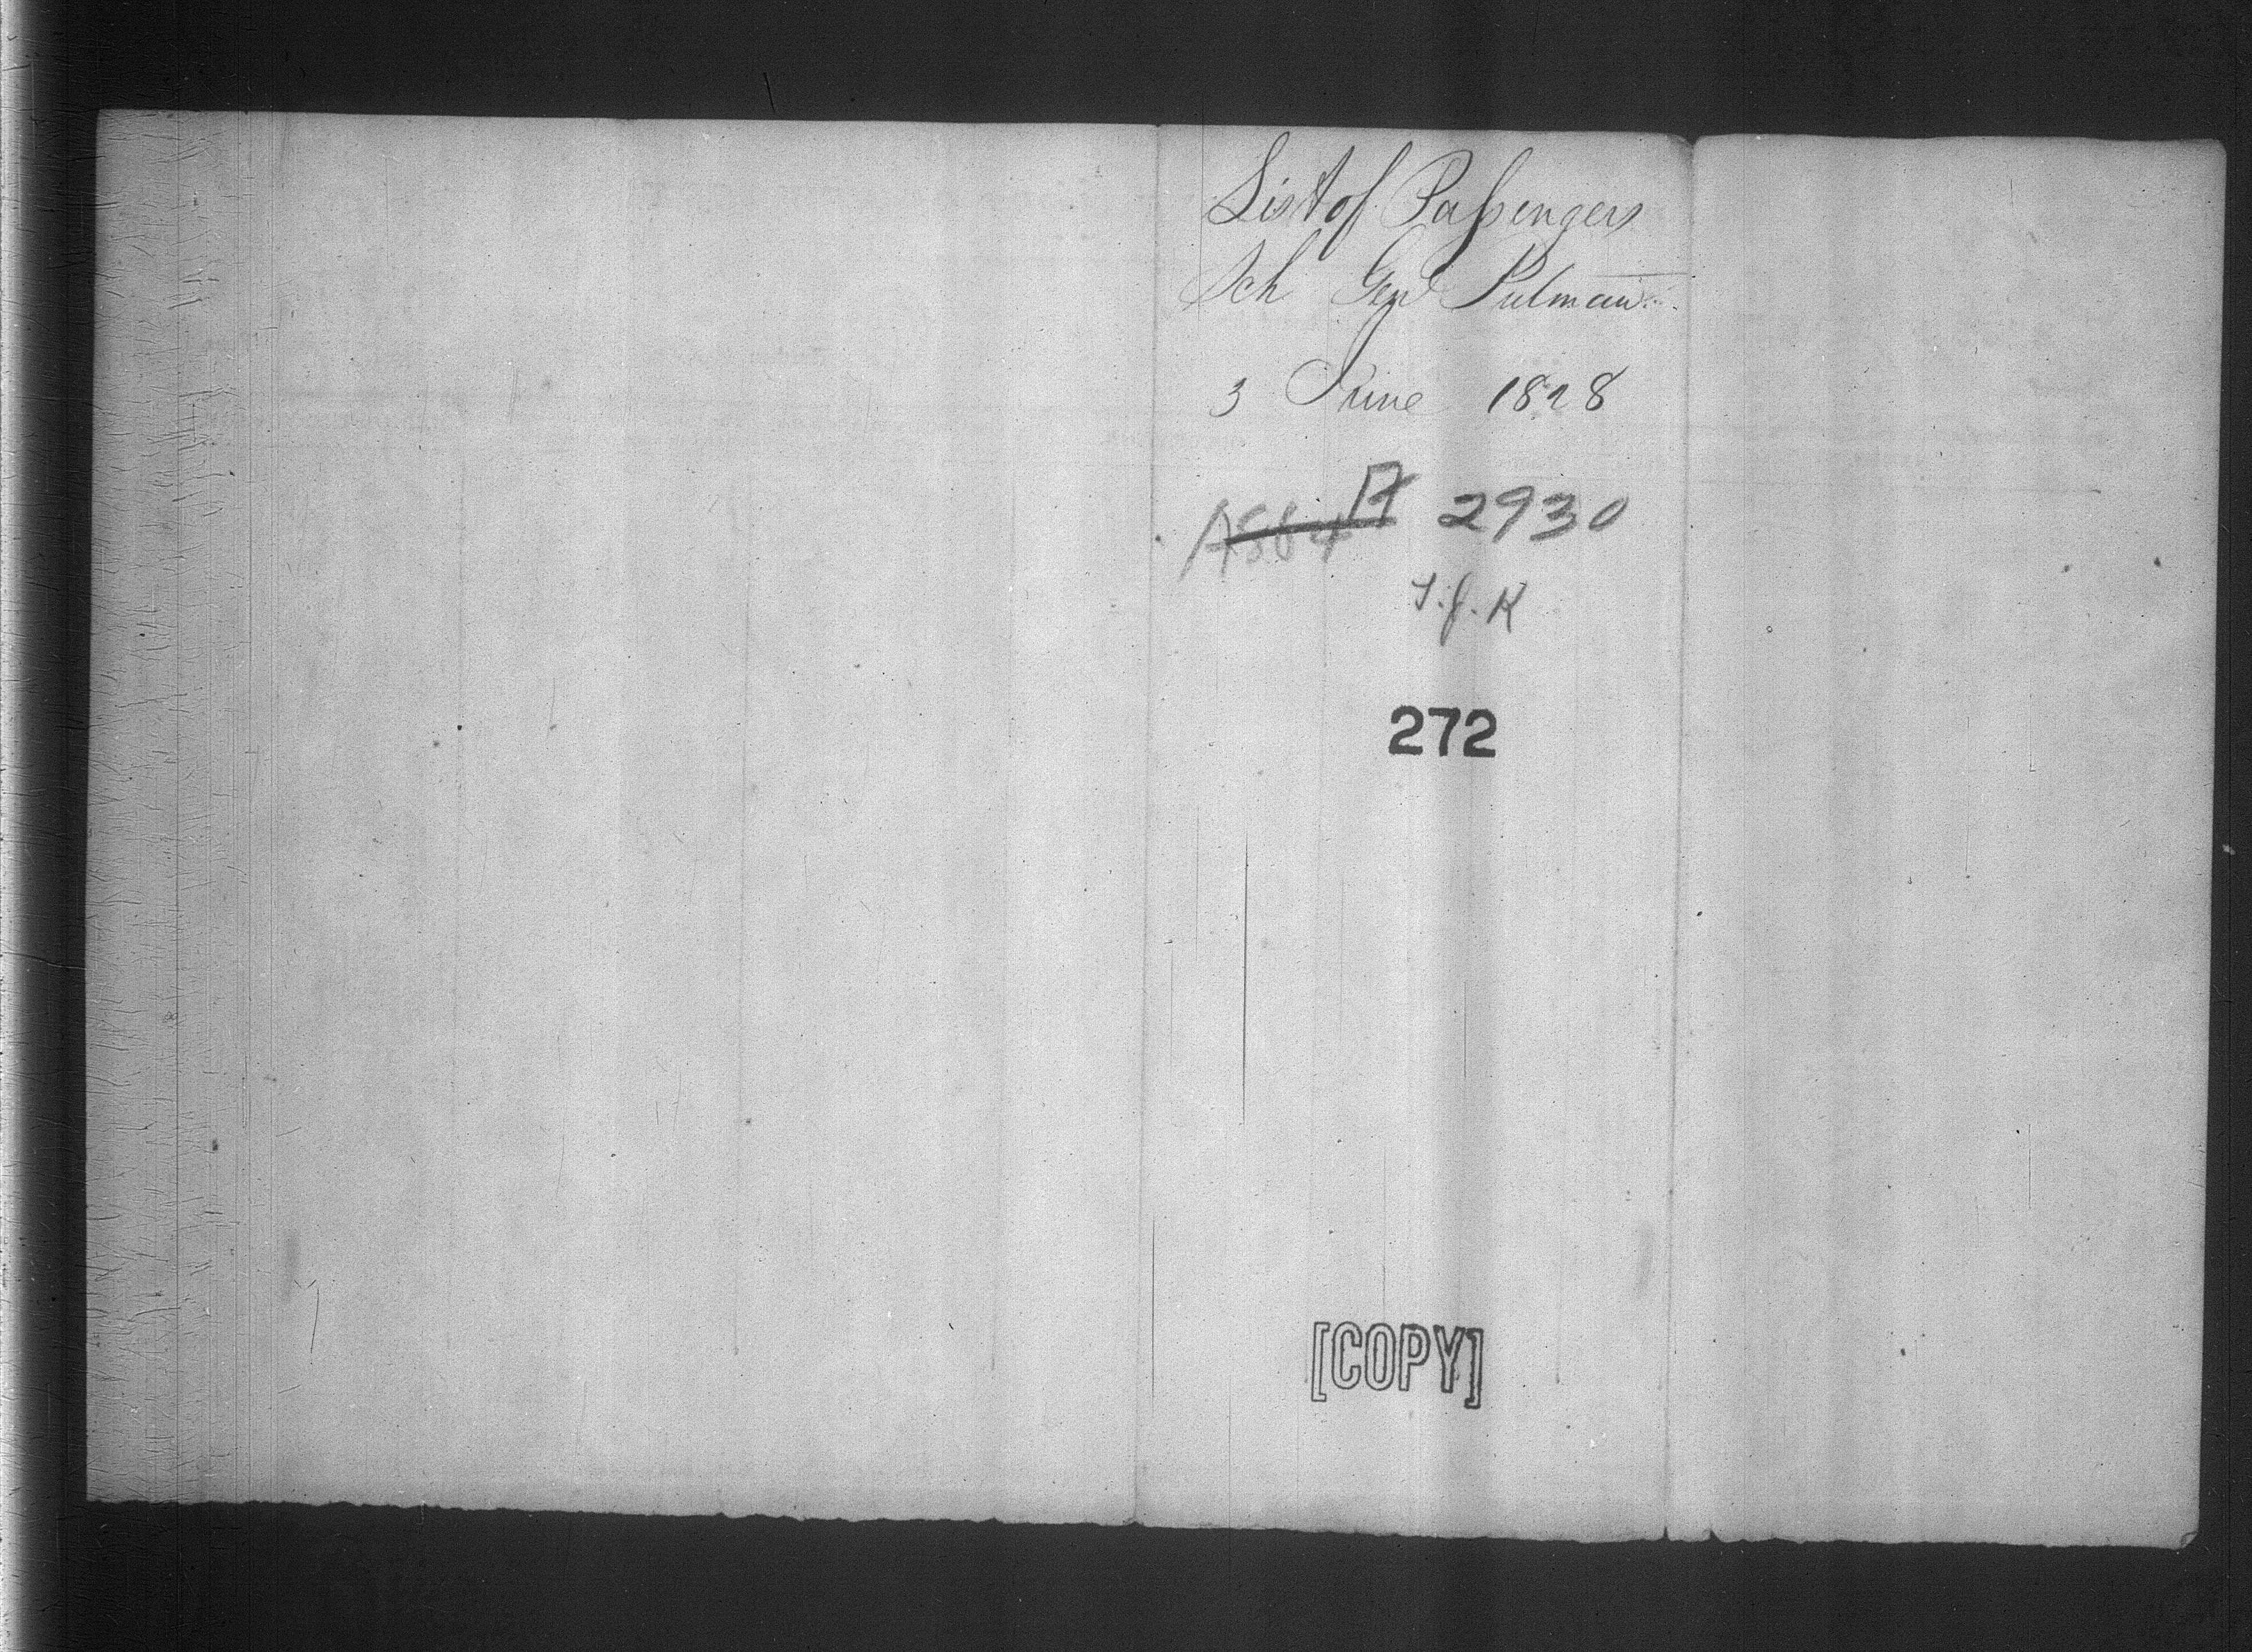 List of Passengers
Sch Genl Putman
3 June 1828
A 2930
T.J.K
272
[COPY]